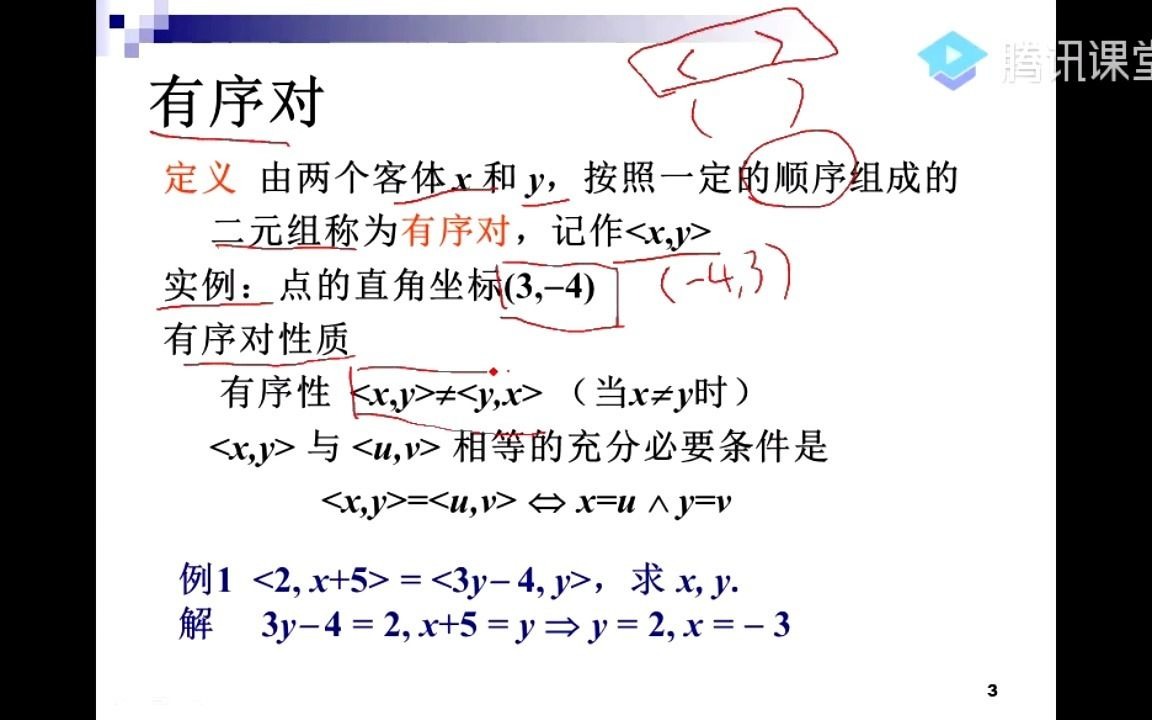 腾讯课堂
< >
( )
有序对
定义 由两个客体 x 和 y，按照一定的顺序组成的
二元组称为有序对，记作<x,y>
实例：点的直角坐标(3,−4) (-4,3)
有序对性质
有序性 <x,y>≠<y,x> （当x≠y时）
<x,y> 与 <u,v> 相等的充分必要条件是
<x,y>=<u,v> ⇔ x=u ∧ y=v
例1 <2, x+5> = <3y− 4, y>，求 x, y.
解 3y−4 = 2, x+5 = y ⇒ y = 2, x = − 3
3